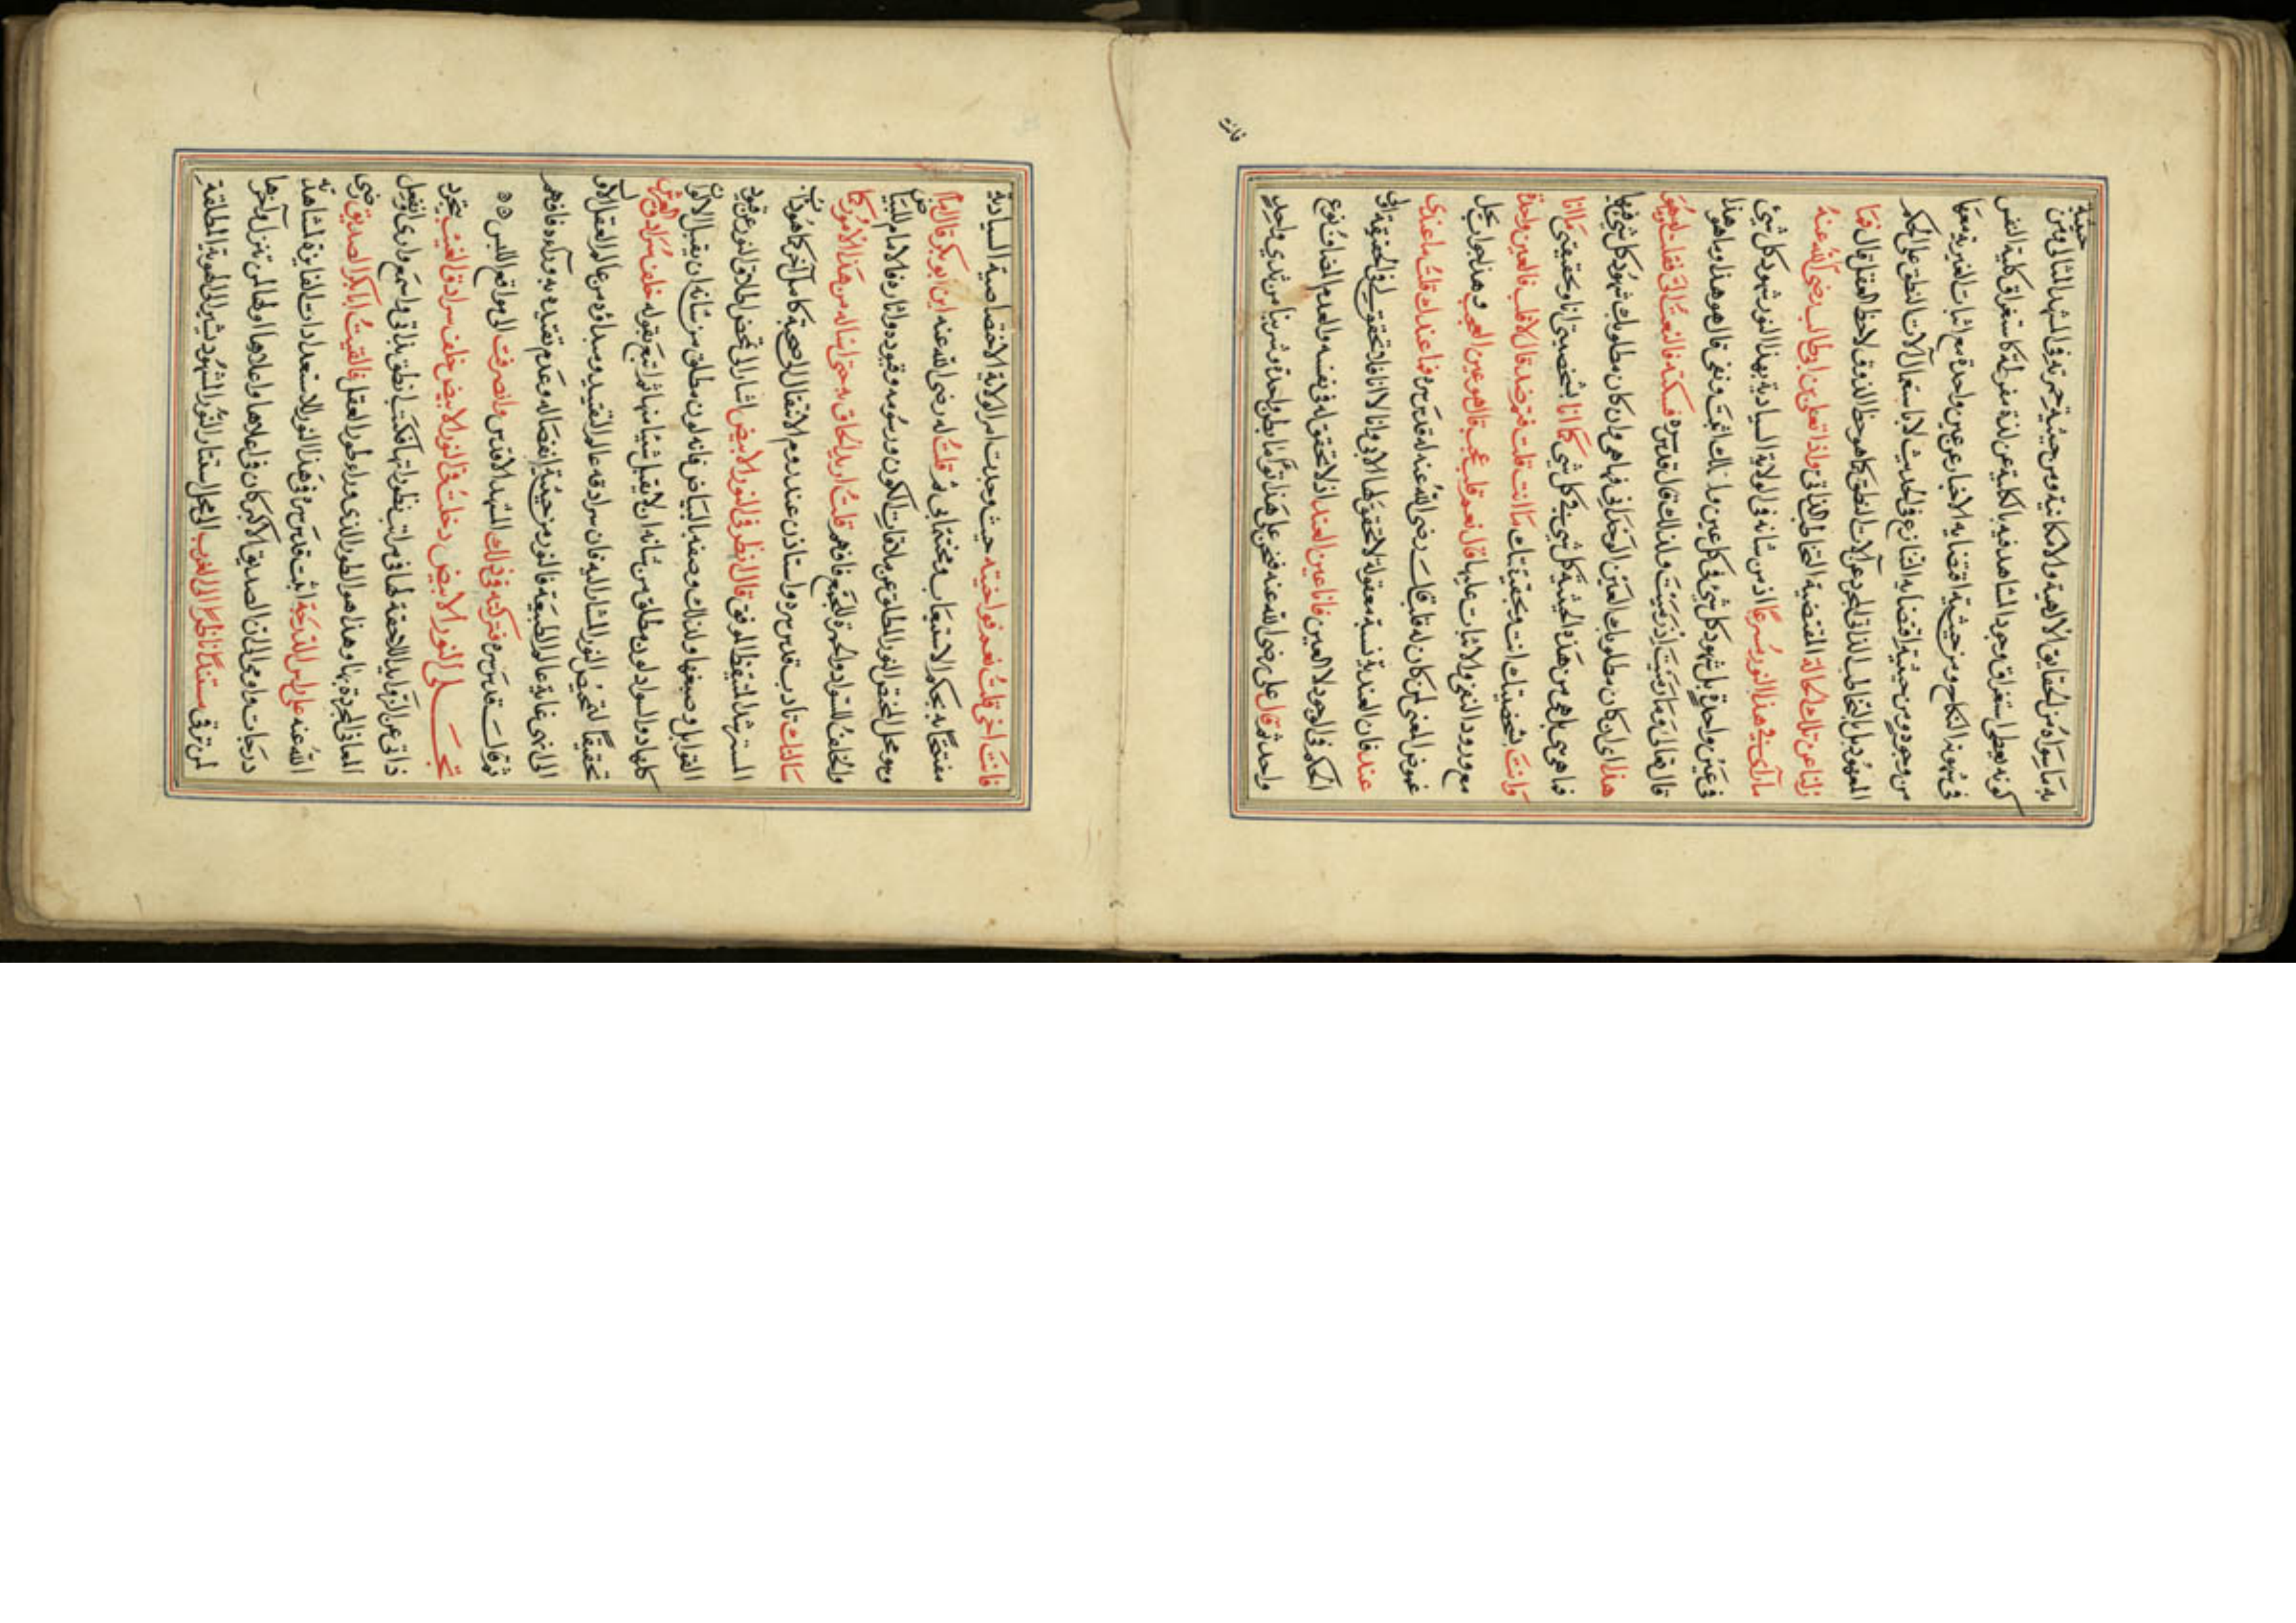 به ما سواه من الحقايق الالهية والامكانية ومن حيثية حيرته في المشهد المثالي ومن حيثية
كونه يعطي استغراق وجود المشاهد فيه بالكلية عن لذة مفرطة كاستغراق كلية النفس
في شهوة النكاح ومن حيثية اقتضايه الاخبار عن عين واحدة مع اثبات الغيرية معها
من وجود ومن حيثية اقتضايه التنازع في الحديث لا باستعمال الات النطق على الحكم
المعهود بل بالتخاطب الذاتي المجرد عن آلات النطق كما هو حظ الذوق لا حظ العقل قال فما
زلنا عن تلك الحالة المقتضية التخاطب الذاتي واذا بعلي بن ابي طالب رضي الله عنه
مارا في هذا النور مسرعا اذ من شانه في الولاية السيادية بهذا النور شهود كل شيء
في عين واحدة بل شهود كل شيء في كل عين ولذلك اثبت ونفى قال هو هذا وما هو هذا
قال تعالى وما رميت اذ رميت ولذلك قال قدس سره فمسكته فالتفت الي فقلت له هو
هذا اي ان كان مطلوبك العين الوحداني فها هي وان كان مطلوبك شهود كل شيء فيها
فما هي هي بل هي من هذه الحيثية كل شيء في كل شيء كما انا بشخصيتي انا وبحقيقتي ما انا
وانت بشخصيتك انت وبحقيقتك ما انت قلت فثم ضد قال لا قلت فالعين واحدة
مع ورود النفي والاثبات عليها قال نعم قلت عجب قال هو عين العجب وهذا جواب يحل
غموض المعنى لمن كان له قلب قال رضي الله عنه له قدس سره فما عندك قلت ما عندي
عند فان العندية نسبة معقولة لا تحقق لها الا بي وانا لا انا فلا تحقق لي في الحقيقة اذن
الحكم في الوجود لا للعين فانا عين العند اذ لا تحقق له في نفسه والعدم المضاف نوع
واحد ثم قال علي رضي الله عنه فنحن على هذا توأما بطن واحدة وشربنا من ثدي واحد
فانت
فانت اخي قلت نعم فواخيته حيث وجدت امر الولاية الاختصاصية السيادية
مفتتحا له بحكم الاستيعاب ومختتما بي ثم قلت له رضي الله عنه اين ابو بكر قال امام
وهو محل المختص بالنور المطلق عن علاقات الكون ورسومه وقيوده واثاره فالامام للبياض
والخلف للسواد والحمرة للجمع فافهم قلت اريد اللحاق به حتى اساله من هذا الامر كما
سالتك تادب قدس سره واستاذن عند روم الانتقال الى صحبة كامل آخر كما هو داب
المسترشد المتيقظ الموفق قال انظره في النور الابيض اشار الى محض اطلاق النور عن قيود
القوابل وصبغها ولذلك وصفه بالبياض فانه لون مطلق من شانه ان يقبل الالوان
كلها دون السواد لون مطلق من شانه ان لا يقبل شيئا منها ثم تمم بقوله خلف سرادق العرش
تحقيقا لتمحيض النور المشار اليه فان سرادقه عالم التقييد ومبداؤه من عالم العقل الاول
الى ان انتهى غاية عالم الطبيعة فالنور من حيثية انفصاله وعدم تقيده به ورآه فافهم
ثم قال قدس سره فتركته في ذلك المشهد الاقدس وانصرفت الى مواقع اللبس
تجلي النور الابيض دخلت في النور الابيض خلف سرادق الغيب بتجرد
ذاتي عن الزوايد اللاحقة لها في مراتب تطوراتها فكنت انطق بذاتي واسمع وارى وافعل
المعاني المجردة بها وهذا هو الطور الذي وراء طور العقل فالفيت ابا بكر الصديق رضي
الله عنه على راس الدرجة اثبت قدس سره في هذا النور لاستعدادات الفايزة لمشاهدته
درجات واومى الى ان الصديق الاكبر كان في اعلاها واعلاها اولها لمن تنزل وآخرها
لمن ترقى مستندا ناظرا الى الغرب الى محل استتار النور المشهود مشيرا الى الهوية المطلقة